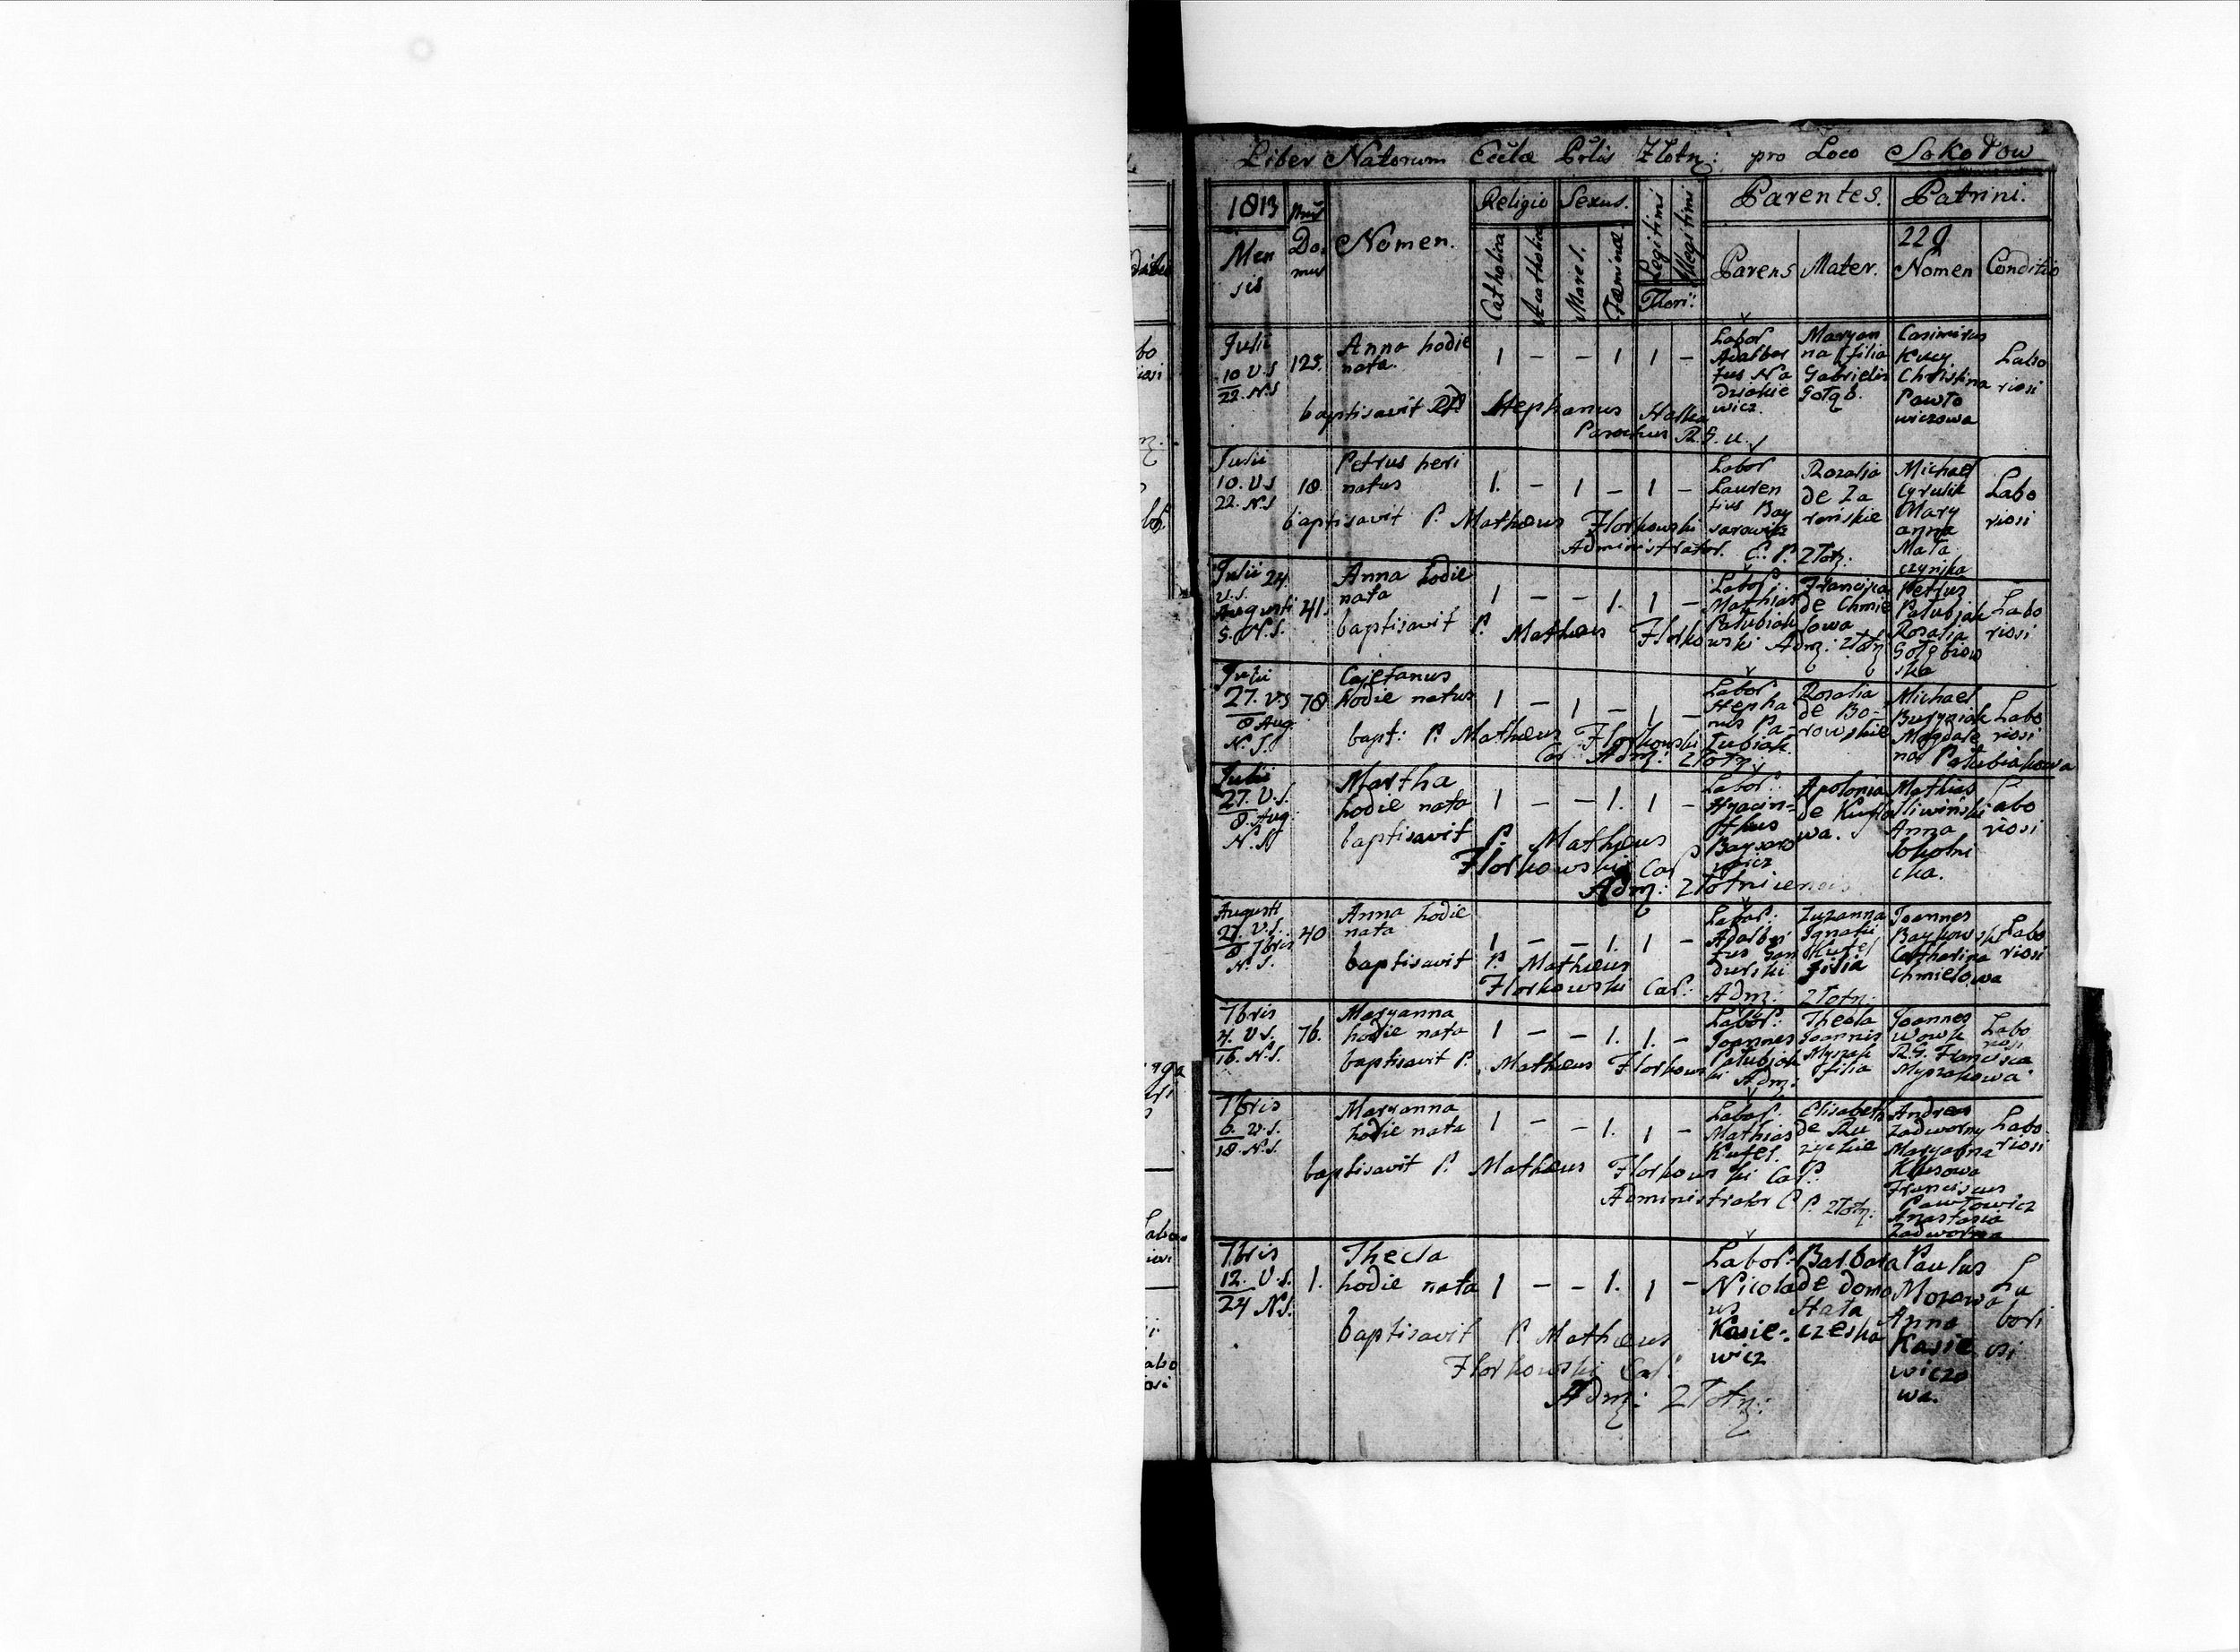 Liber Natorum Ecclæ Prlis Złotn: pro Loco Sokołow
1813
Men
sis
Nrus
Do
mus
Nomen.
Religio
Catholica
Acatholica
Sexus.
Mares.
Fæminæ
Legitimi
Illegitimi
Thori:
Parentes.
Parens
Mater.
Patrini.
229
Nomen
Conditio
Julii
10 V.S
22. N.S
125.
Anna hodie
nata.
1 - - 1 1 -
baptisavit
Stephanus
Parochus R. G. U.
Labor
Adalber
tus Na
dziakie
wicz.
Maryan
na filia
Gabrielis
Gołąb.
Casimirus
Kucy
Christina
Pawło
wiczowa
Labo
riosi
Julii
10. V.S
22. N.S
18
Petrus heri
natus
1. - 1 - 1 -
baptisavit P. Mathæus Florkowski
Administrator. E. P. Złotn:
Labor
Lauren
tius Bay
sarowicz
Rozalia
de Za
reńskie
Michael
Cyrulik
Mary
anna
Mała
czyńska
Labo
riosi
Julii 24.
V.S.
Augusti
5. N.S.
41.
Anna hodie
nata
1 - - 1. 1 -
baptisavit P. Mathæus Florkowski Adm: Złotn
Labor
Mathias
Pałubiak
Francisca
de Chmie
lowa
Petrus
Pałubiak
Rosalia
Gołębiow
ska
Labo
riosi
Julii
27. V.S
8 Aug.
N.S.
78
Cajetanus
hodie natus
1 - 1 - 1 -
bapt: P. Mathæus Florkowski
Cap. Adm: Złotn:
Labor
Stepha
nus Pa
łubiak
Rosalia
de Bo-
rowskie
Michael
Busyniak
Magdale
na Pałubiakowa
Labo
riosi
Julii
27. V.S.
8. Aug:
N.S
Martha
hodie nata
1 - - 1. 1 -
baptisavit P. Mathæus
Florkowski Cap
Adm: Złotnicensis
Labor:
Hyacin-
thus
Baysaro
wicz
Apolonia
de Kuflo
wa.
Mathias
Sliwiński
Anna
Sokolni
cka.
Labo
riosi
Augusti
27. V.S.
8 7bris
N.S.
40
Anna hodie
nata
1 - - 1. 1 -
baptisavit P. Mathæus
Florkowski Cap: Adm: Złotn:
Labor:
Adalber
tus Gon
durski
Zuzanna
Ignatii
Kufel
filia
Joannes
Baykowski
Catharina
Chmielowa
Labo
riosi
7bris
4. V.S.
16. N.S.
76.
Maryanna
hodie nata
1 - - 1. 1. -
baptisavit P. Mathæus Florkows
ki Adm:
Labor:
Joannes
Pałubiak
Thecla
Joannis
Myszak
filia
Joannes
Wowk
R.G. Francisca
Myszakowa
Labo
riosi
7bris
6. V.S.
18. N.S.
Maryanna
hodie nata
1 - - 1. 1 -
baptisavit P. Mathæus Florkowski Cap:
Administrator E. P. Złotn:
Labor.
Mathias
Kufel.
Elisabeth
de Ru
zyckie
Andreas
Zadworny
Maryanna
Klusowa
Franciscus
Pawłowicz
Anastasia
Zadworna
Labo
riosi
7bris
12. V.S.
24 N.S.
1.
Thecla
hodie nata
1 - - 1. 1 -
baptisavit P. Mathæus
Florkowski Cap:
Adm: Złotn:
Labor:
Nicola
us
Kasie-
wicz
Barbara
de domo
Hała
czeska
Paulus
Mozawa
Anna
Kasie
wiczo
wa.
La
bori
osi